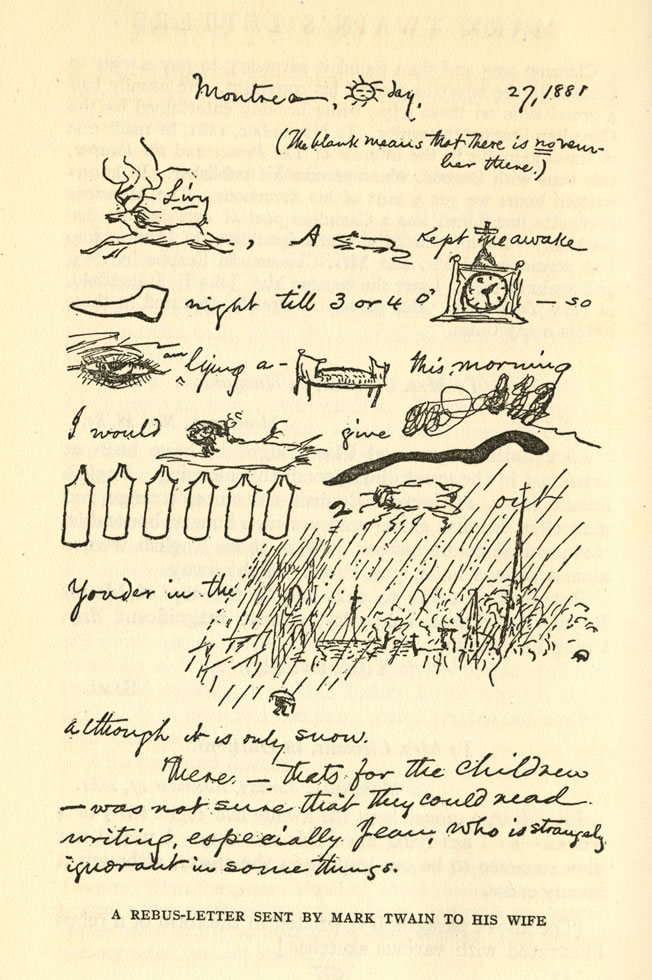 Montrea—, day, 27, 1881
(The blank means that there is no num-
ber there.)
Livy
, A kept me awake
night till 3 or 4 o' — so
am lying a-
this morning
I would give
2 out
Yonder in the
although it is only snow.
There. — thats for the children
— was not sure that they could read
writing, especially Jean, who is strangely
ignorant in some things.
A REBUS-LETTER SENT BY MARK TWAIN TO HIS WIFE